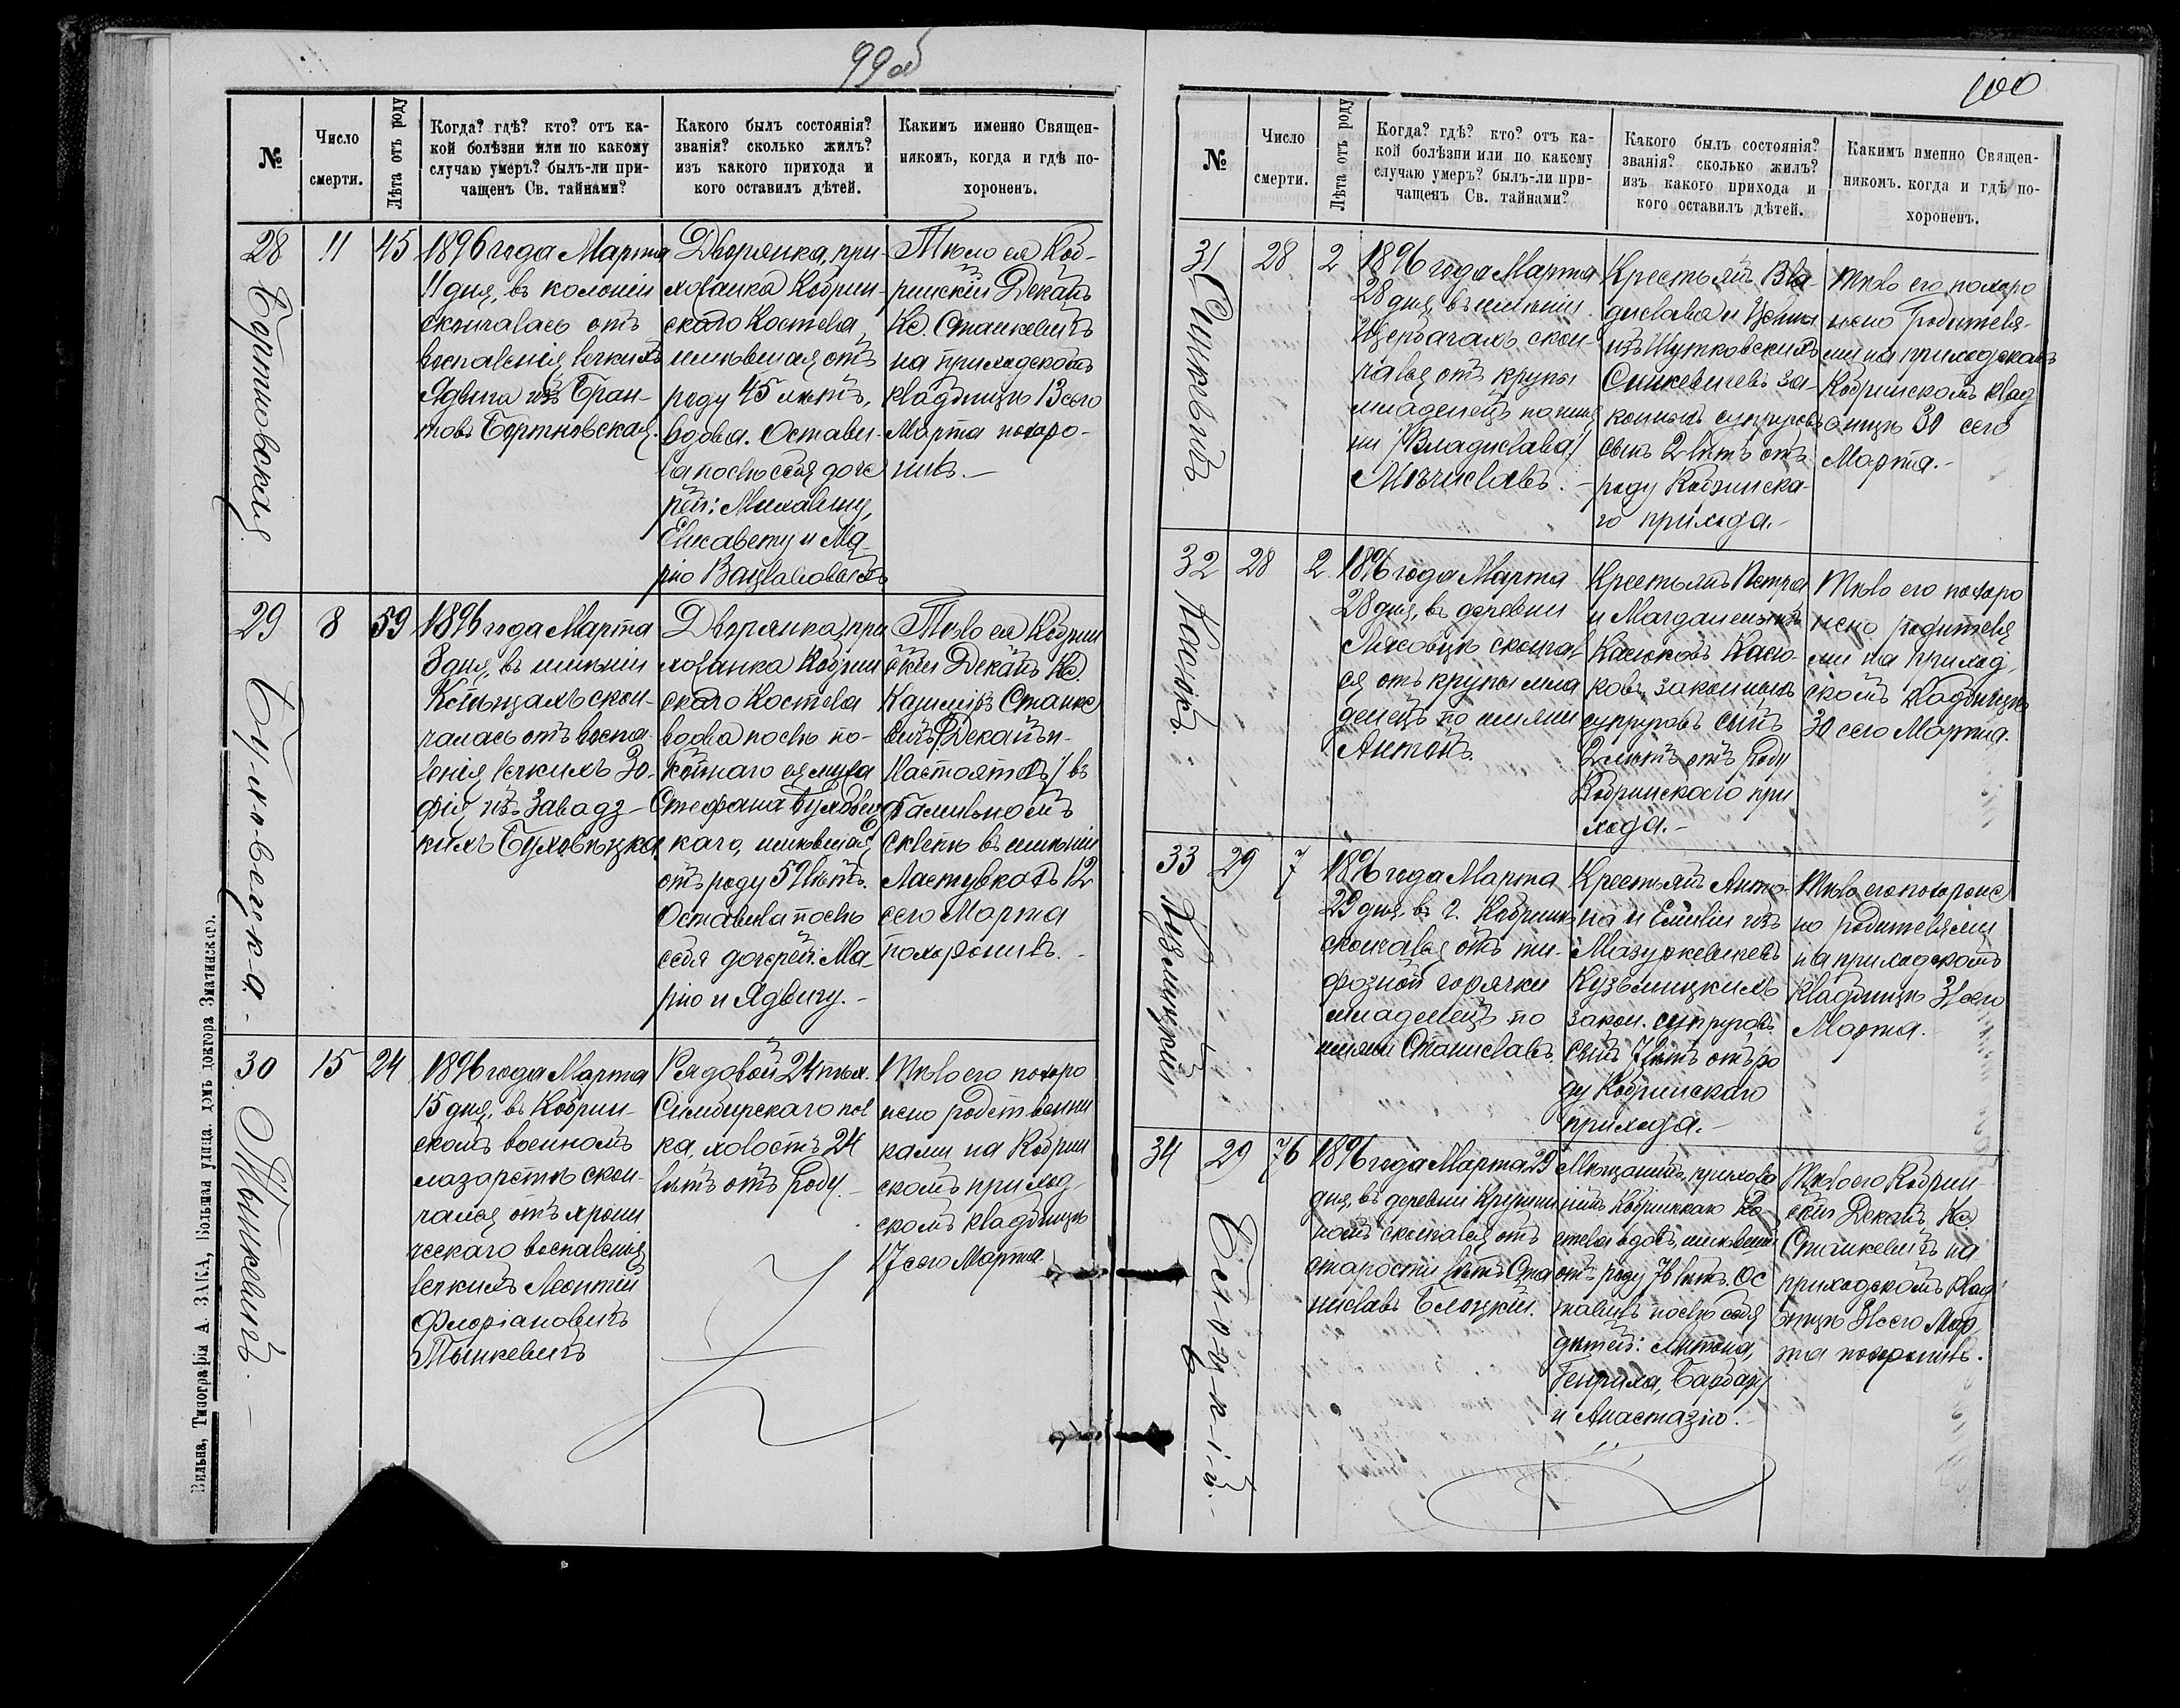 99об
№
Число
смерти.
Лѣта отъ роду
Когда? гдѣ? кто? отъ ка-
кой болѣзни или по какому
случаю умеръ? былъ-ли при-
чащенъ Св. тайнами?
Какого былъ состоянія?
званія? сколько жилъ?
изъ какого прихода и
кого оставилъ дѣтей.
Какимъ именно Священ-
никомъ, когда и гдѣ по-
хороненъ.
28
Бортновская.
11
45
1896 года Марта
11 дня, въ колоніи
скончалась отъ
воспаленія легкихъ
Ядвига изъ Бран-
товъ Бортновская.
Дворянка, при-
хожанка Кобрин-
скаго Костела,
имѣвшая отъ
роду 45 лѣтъ,
вдова. Остави-
ла послѣ себя доче
рей: Михалину,
Елисавету и Ма-
рію
Тѣло ея Коб-
ринскій Деканъ
Кс. Станкевичъ
на приходскомъ
кладбищѣ 13 сего
Марта похоро-
нилъ.-
29
Буховецка.-
8
59
1896 года Марта
8 дня, въ имѣніи
скон-
чалась отъ воспа
ленія легкихъ Зо-
фія изъ Завадз-
кихъ Буховецка.
Дворянка, при
хожанка Кобрин
скаго Костела
вдова послѣ по-
койнаго ея мужа
Стефана Буховец
каго, имѣвшая
отъ роду 59 лѣтъ.
Оставила послѣ
себя дочерей: Ма-
рію и Ядвигу.-
Тѣло ея Кобрин
скій Деканъ Кс.
Казиміръ Станке
вичъ /Деканъ и
Настоятель/ въ
фамильномъ
склепѣ въ имѣніи
Ластувкахъ 12
сего Марта
похоронилъ.-
30
Тынкевичъ.-
15
24
1896 года Марта
15 дня, въ Кобрин-
скомъ военномъ
лазаретѣ скон-
чался отъ хрони
ческаго воспаленія
легкихъ Леонтій
Флоріановичъ
Тынкевичъ
Рядовой 24 пѣх.
Симбирскаго пол
ка, холостъ 24
лѣтъ отъ роду.-
Тѣло его похоро
нено родственни
ками на Кобрин
скомъ приход-
скомъ кладбищѣ
17 сего Марта
Вильна, Типографія А. ЗАКА, Большая улица. домъ доктора
100
№
Число
смерти.
Лѣта отъ роду
Когда? гдѣ? кто? отъ ка-
кой болѣзни или по какому
случаю умеръ? былъ-ли при-
чащенъ Св. тайнами?
Какого былъ состоянія?
званія? сколько жилъ?
изъ какого прихода и
кого оставилъ дѣтей.
Какимъ именно Священ-
никомъ. когда и гдѣ по-
хороненъ.
31
Синкевичъ.
28
2
1896 года Марта
28 дня, въ имѣніи
скон-
чался отъ крупы
младенецъ по име
ни /Владислава/
Мѣчиславъ.-
Крестьянъ Вла-
дислава и
изъ Шутковскихъ
Синкевичевъ за-
конныхъ супруговъ
сынъ 2 лѣтъ отъ
роду Кобринска-
го прихода.-
Тѣло его похоро
нено родителя-
ми на приходскомъ
Кобринскомъ клад
бищѣ 30 сего
Марта.-
32
Касюкъ.
28
2
1896 года Марта
28 дня, въ деревни
Ляховцѣ скончал
ся отъ крупы мла
денецъ по имени
Антонъ.
Крестьянъ Петра
и Магдалены изъ
Касюковъ Касю-
ковъ законныхъ
супруговъ сынъ
2 лѣтъ отъ роду
Кобринскаго при
хода.-
Тѣло его похоро
нено родителя
ми на приход-
скомъ кладбищѣ
30 сего Марта.
33
Кузьмицкій
29
7
1896 года Марта
29 дня, въ г. Кобринѣ
скончался отъ ти-
фозной горячки
младенецъ по
имени Станиславъ
Крестьянъ Анто-
на и Емиліи изъ
Мазуркевичевъ
Кузьмицкихъ
закон. супруговъ
сынъ 7 лѣтъ отъ ро
ду Кобринскаго
прихода.-
Тѣло его похороне
но родителями
на приходскомъ
кладбищѣ 31 сего
Марта.-
34
Блоцкій.-
29
76
1896 года Марта 29
дня, въ деревни
скончался отъ
старости лѣтъ Ста
ниславъ Блоцкій.
Мѣщанинъ, прихожа
нинъ Кобринскаго Ко-
стела вдовъ, имѣвшій
отъ роду 76 лѣтъ. Ос
тавилъ послѣ себя
дѣтей: Антона,
Генриха, Барбару
и Анастазію.-
Тѣло его Кобрин-
скій Деканъ Кс.
Станкевичъ на
приходскомъ клад
бищѣ 31 сего Мар
та похоронилъ.